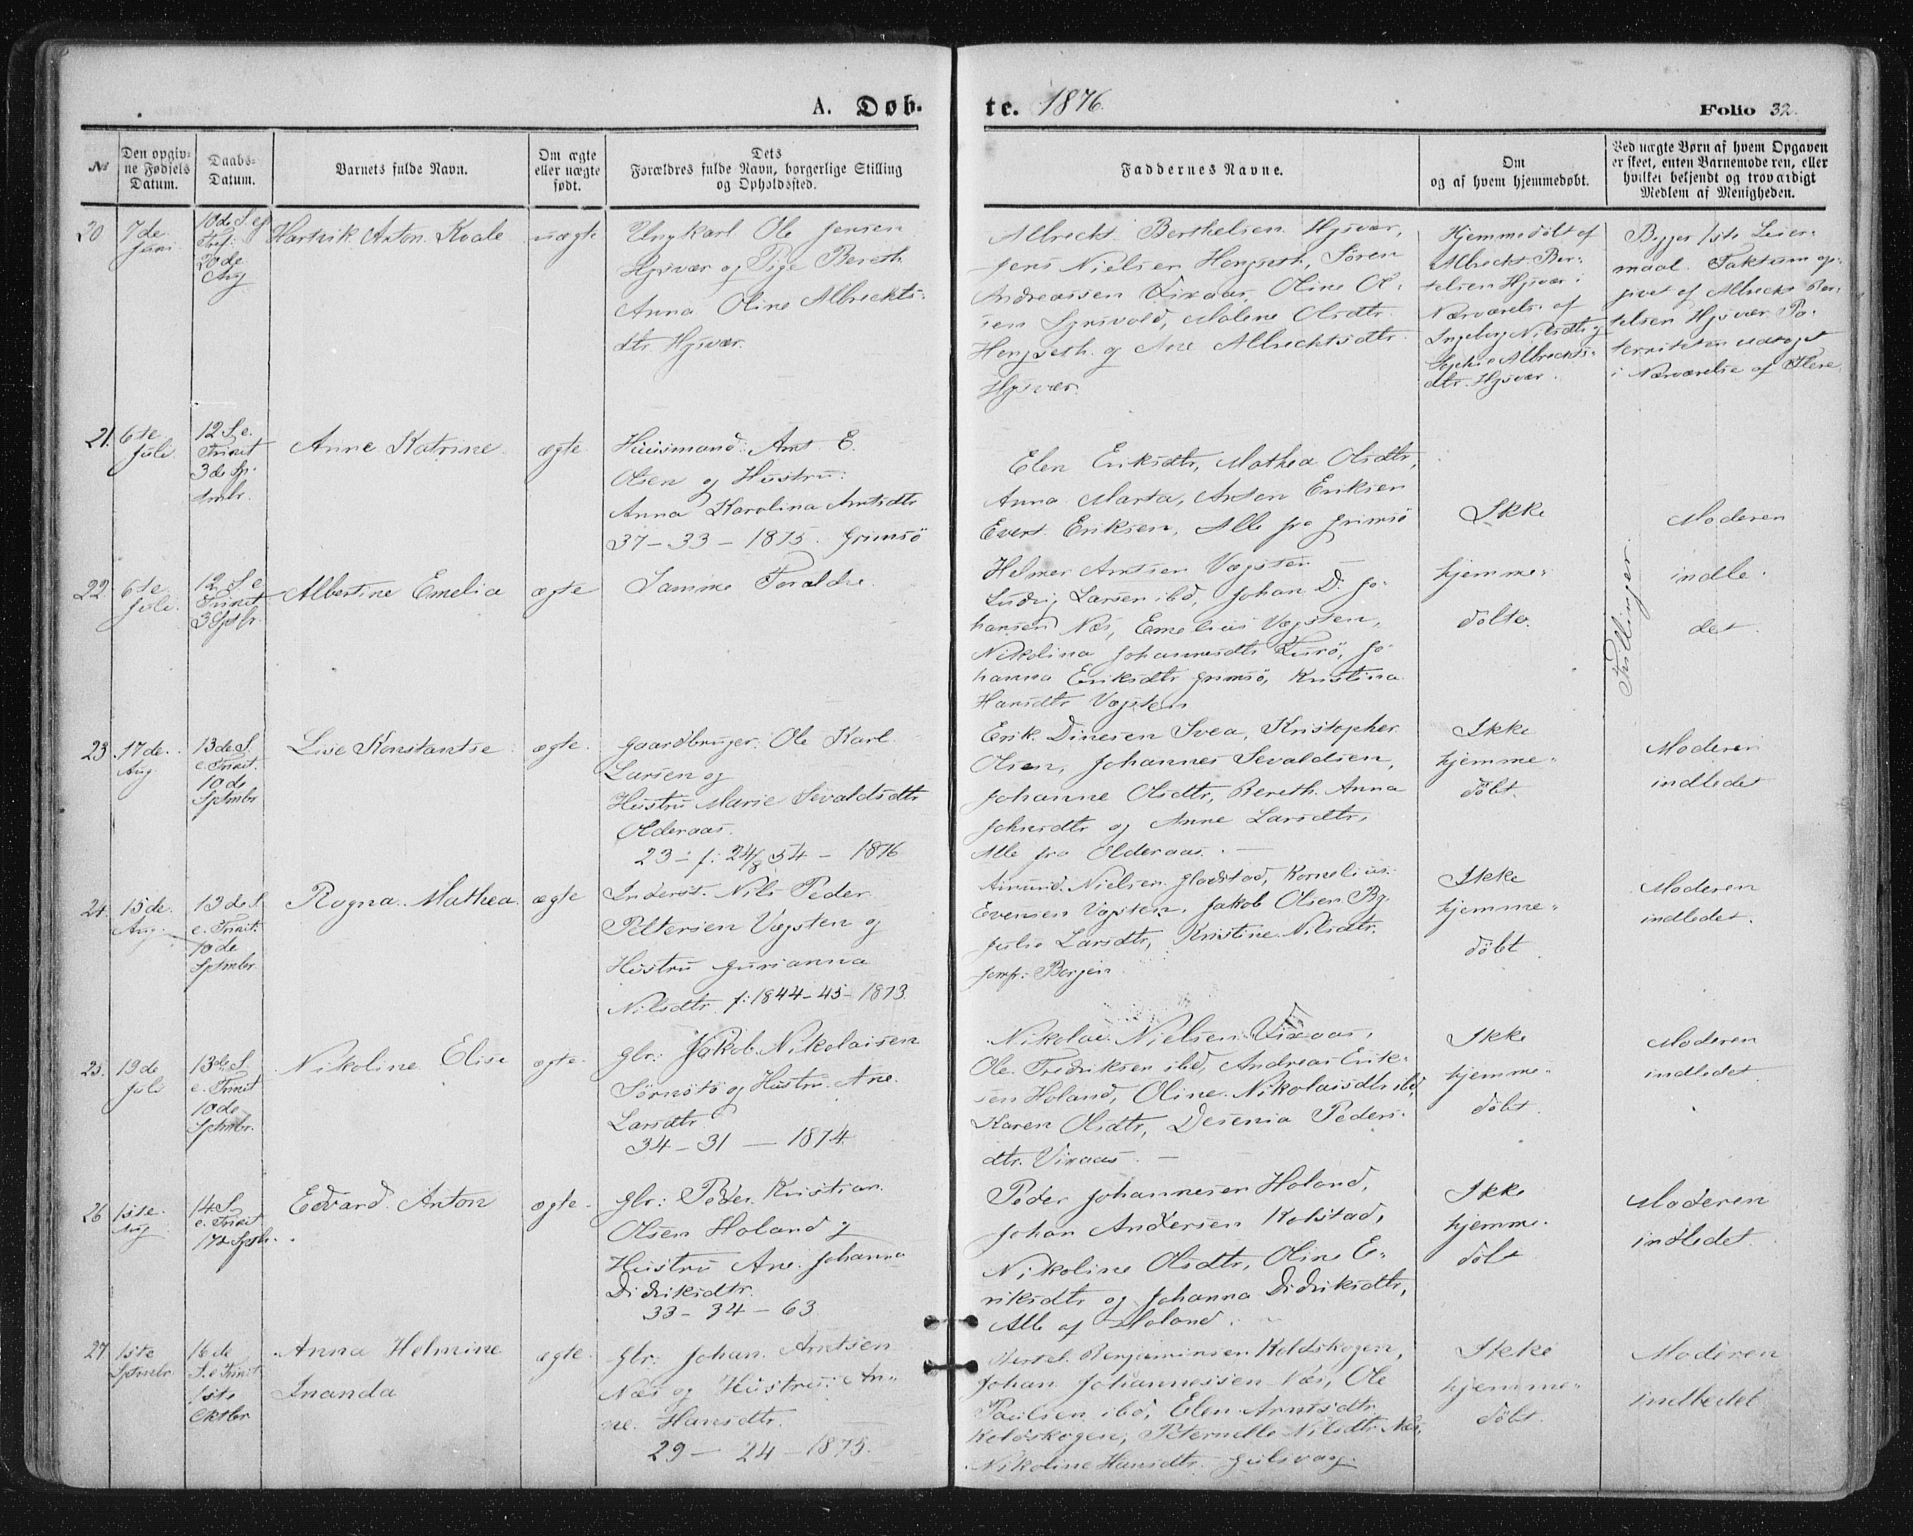 A. Døb-
te. 1876.
Folio 32.
№
Den opgiv-
ne Fødsels
Datum.
Daabs-
Datum.
Barnets fulde Navn.
Om ægte
eller uægte
født.
Dets
Forældres fulde Navn, borgerlige Stilling
og Opholdssted.
Faddernes Navne.
Om
og af hvem hjemmedøbt.
Ved uægte Børn af hvem Opgaven
er skeet, enten Barnemoderen, eller
hvilket bekjendt og troværdigt
Medlem af Menigheden.
20
7de
Jani
10de S. e.
Tref:
20de
Aug
Hartvik Anton Kvale
uægte
Ungkarl Ole Jensen
Hysvær og Pige Bereth
Anna Oline Albrekts-
dtr Hysvær.
Albrecht Berthelsen Hysvær,
Jens Nielsen Hongseth, Sören
Andreassen Vixaas, Oline Ol-
sen Lynsvold, Malene Olsdtr
Hongseth og Ane Albrechtsdtr
Hysvær.
Hjemmedöbt af
Albrecht Ber-
telsen Hysvær i
Nærværelse af
Ingeborg Nilsdtr og
Sophie Albrects-
dtr. Hysvær.
Begges 1ste Leier-
maal. Faktum op-
givet af Albrecht Ber-
telsen Hysvær. Pa-
terniteten udsagt
i Nærværelse af Flere
21.
6te
Juli
12 S. e.
Trinit
3de Sp-
tmbr.
Anne Katrine
ægte
Huusmand: Arnt E.
Olsen og Hustru:
Anna Karolina Arntsdtr
37 - 33 - 1875. Grimsö
Elen Eriksdtr, Mathea Olsdtr,
Anna Marta, Anton Eriksen
Evert Eriksen, Alle fra Grimsö
Ikke
Moderen
22.
6te
Juli.
12 S. e
Trinit
3 Sptbr.
Albertine Emelia
ægte
Samme Forældre.
Helmer Arntsen Vægsten
Ludvig Larsen ibd, Johan D. Jo-
hansen Næs, Emelius Vægsten,
Nikolina Johannesdtr Lurö, Jo-
hanna Eriksdtr Grimsö, Kristina
Hansdtr Vægsten
hjemme-
döbte.
Tvillinger.
indle
det.
23.
17de
Aug
13de S.
e. Trinit.
10de
Sptmbr
Lise Konstantse
ægte.
Gaardbruger: Ole Karl
Larsen og
Hustru Marie Sevaldsdtr
Olderaas.
23 - f: 24/8 54 - 1876
Erik Dinesen Svea, Kristopher
Olsen, Johannes Sevaldsen,
Johanne Olsdtr, Bereth Anna
Johnsdtr og Anne Larsdtr,
Alle fra Olderaas.
Ikke
hjemme-
döbt.
Moderen
indledet
24.
15de
Aug.
13de S
e. Trinit.
10de
Sptmbr
Ragna Mathea
ægte
Inderst. Nils Peder
Pettersen Vægsten og
Hustru Gurianna
Nilsdtr. f: 1844 - 45 - 1873.
Amund Nielsen Gladstad, Kornelius
Evensen Vægsten, Jakob Olsen By,
Julie Larsdtr, Kristine Nilsdtr.
Jomfr: Borgen.
Ikke
hjemme-
döbt
Moderen
indledet.
25.
19de
Juli
13de S
e. Trinit
10de
Sptmbr.
Nikoline Elise
ægte.
Gbr: Jakob Nikolaisen
Sörnstö og Hustru Ane
Larsdtr.
34 - 31 - 1874.
Nikolai Nielsen Vixaas,
Ole Fredriksen ibd, Andreas Erik-
sen Holand, Oline Nikolaisdtr ibd,
Karen Olsdtr, Desenia Peders-
dtr. Vixaas.
Ikke
hjemme-
döbt.
Moderen
indledet
26
1ste
Aug
14 S
e. Trinit
17de Sptbr.
Edvard Anton
ægte.
Gbr: Peder Kristian
Olsen Holand og
Hustru Ane Johanna
Didriksdtr.
33 - 34 - 63.
Peder Johannesen Holand,
Johan Andersen Kolstad,
Nikoline Olsdtr, Oline E-
riksdtr og Johanna Didriksdtr,
Alle af Holand.
Ikke
hjemme-
döbt
Moderen
indledet
27
1ste
Sptmbr
16de
S. e Trinit
1ste
Oktbr
Anna Helmine
Inanda
ægte.
Gbr: Johan Arntsen
Næs og Hustru: An-
ne Hansdtr.
29 - 24 - 1875.
Bertel Benjaminsen Koldskogen,
Johan Johannessen Næs, Ole
Paulsen ibd, Elen Arntsdtr
Koldskogen, Peternelle Nilsdtr Næs,
Nikoline Hansdtr. Gulsvaag.
Ikke
hjemme-
döbt.
Moderen
indledet